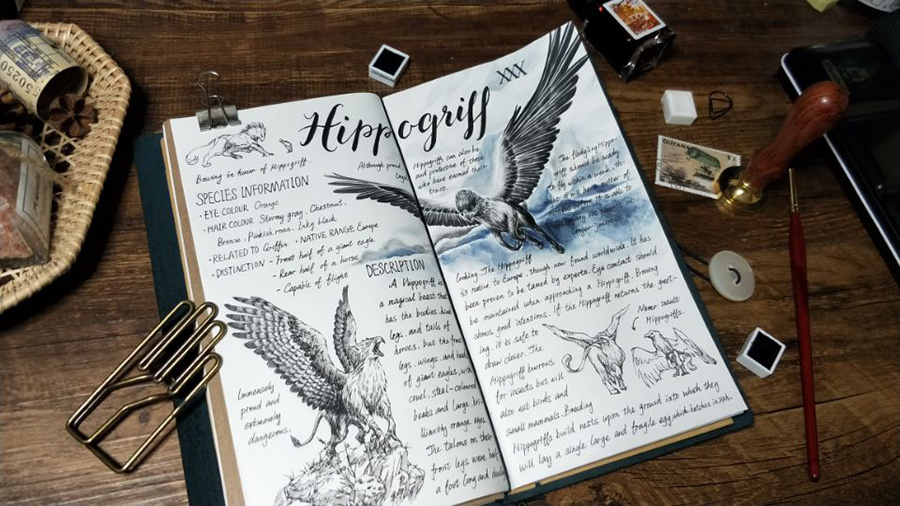 Hippogriff
XXX
Bowing in honor of Hippogriff.
SPECIES INFORMATION
· EYE COLOUR Orange
· HAIR COLOUR Stormy gray. Chestnut.
Bronze. Pinkish roan. Inky black
· RELATED TO Griffin · NATIVE RANGE Europe
· DISTINCTION - Front half of a giant eagle
- Rear half of a horse
- Capable of flight
DESCRIPTION
A Hippogriff is
a magical beast that
has the bodies, hind
legs and tails of
horses, but the front
legs, wings, and heads
of giant eagles, with
cruel, steel-coloured
beaks and large, bri-
lliantly orange eyes.
The talons on their
front legs were half
a foot long and deadly
Immensely
proud and
extremely
dangerous.
Although proud
Hippogriff can also be
and protective of those
who have earned their
trust.
The fledgling Hippo-
griff should be ready
to fly within a week
longer
looking. The Hippogriff
is native to Europe, though now found worldwide. It has
been proven to be tamed by experts. Eye contact should
be maintained when approaching a Hippogriff. Bowing
shows good intentions. If the Hippogriff returns the greet-
ing, it is safe to
draw closer. The
Hippogriff burrows
for insects but will
also eat birds and
small mammals. Breeding
Hippogriffs build nests upon the ground into which they
will lay a single large and fragile egg, which hatches in 24h.
Never insult
Hippogriffs.
50250
GUYANA